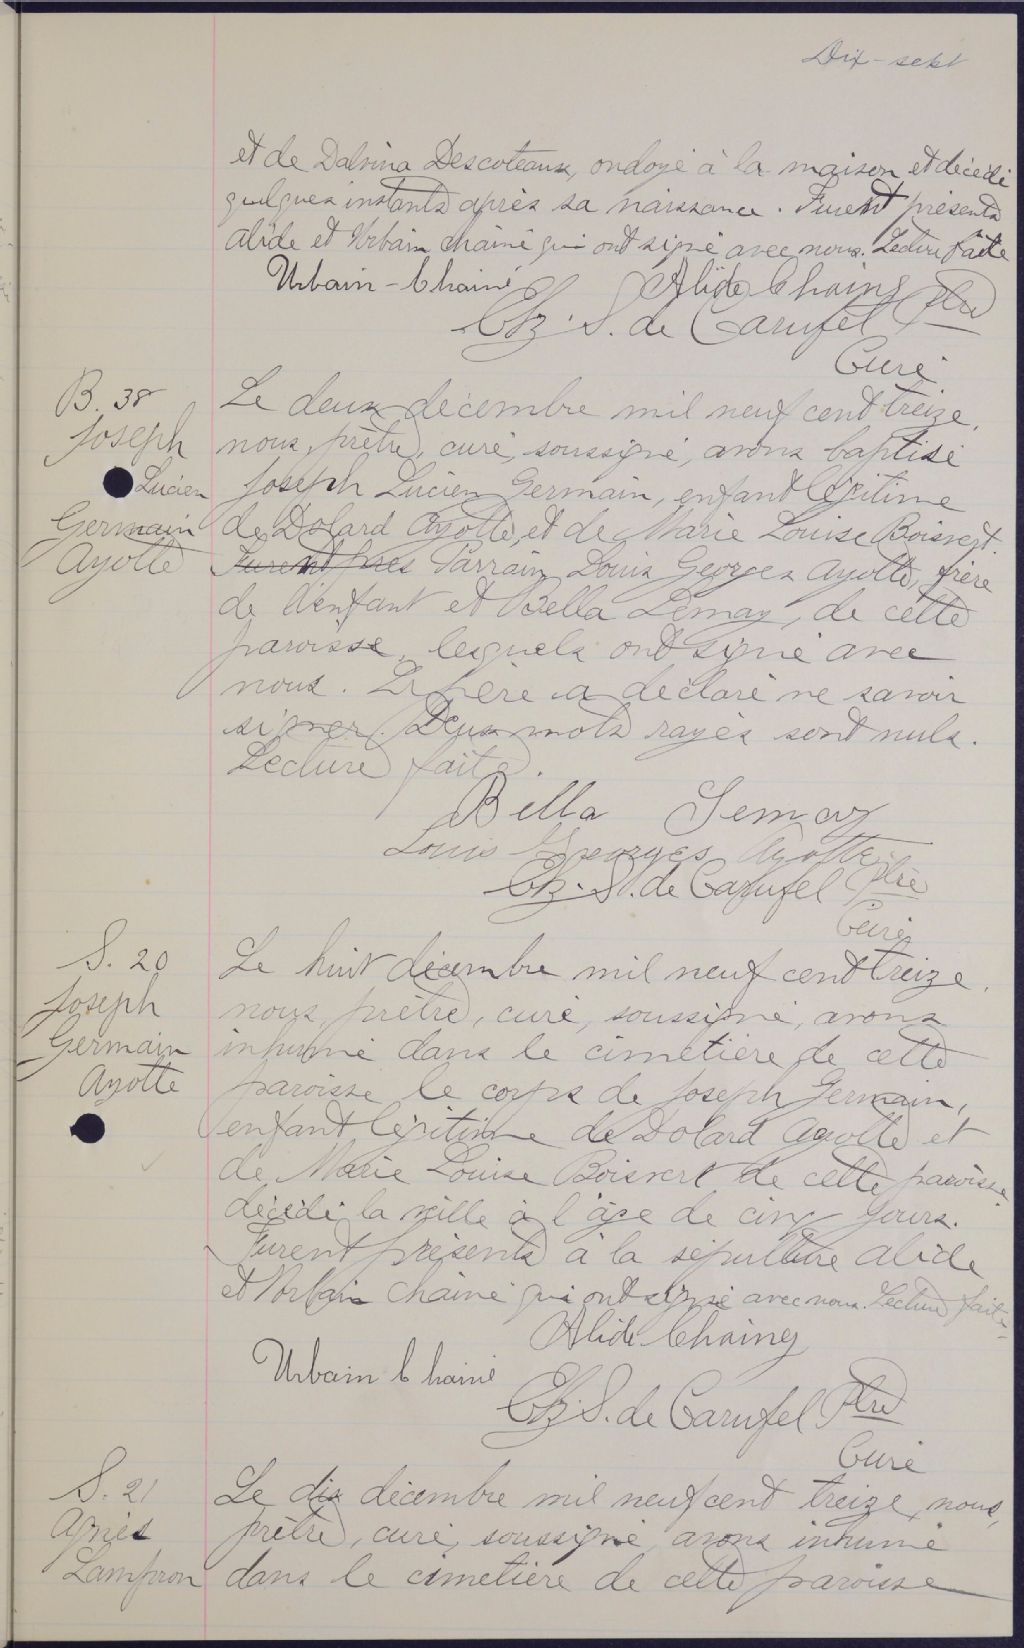 Dix-sept
et de Dalvina Descoteaux, ondoyé à la maison et décédé
quelques instants après sa naissance. Furent présents
Alide et Urbain Chainé qui ont signé avec nous. Lecture faite
Urbain Chainé Alide Chainey
Chs. S. de Carufel Ptre
Curé
B. 38
Joseph
Lucien
Germain
Ayotte
Le deux décembre mil neuf cent treize,
nous, prêtre, curé, soussigné, avons baptisé
Joseph Lucien Germain, enfant légitime
de Dolard Ayotte, et de Marie Louise Boisvert.
Furent pres Parrain Louis Georges Ayotte, frère
de l'enfant et Bella Lemay, de cette
paroisse, lesquels ont signé avec
nous. Le père a déclaré ne savoir
signer. Deux mots rayés sont nuls.
Lecture faite.
Bella Lemay
Louis Georges Ayotte
Chs. S. de Carufel Ptre
Curé
S. 20
Joseph
Germain
Ayotte
Le huit décembre mil neuf cent treize,
nous, prêtre, curé, soussigné, avons
inhumé dans le cimetière de cette
paroisse le corps de Joseph Germain,
enfant légitime de Dolard Ayotte et
de Marie Louise Boisvert de cette paroisse
décédé la veille à l'âge de cinq jours.
Furent présents à la sépulture Alide
et Urbain Chainé qui ont signé avec nous. Lecture faite.
Alide Chainey
Urbain Chainé
Chs. S. de Carufel Ptre
Curé
S. 21
Agnès
Lampron
Le dix décembre mil neuf cent treize, nous,
prêtre, curé, soussigné, avons inhumé
dans le cimetière de cette paroisse